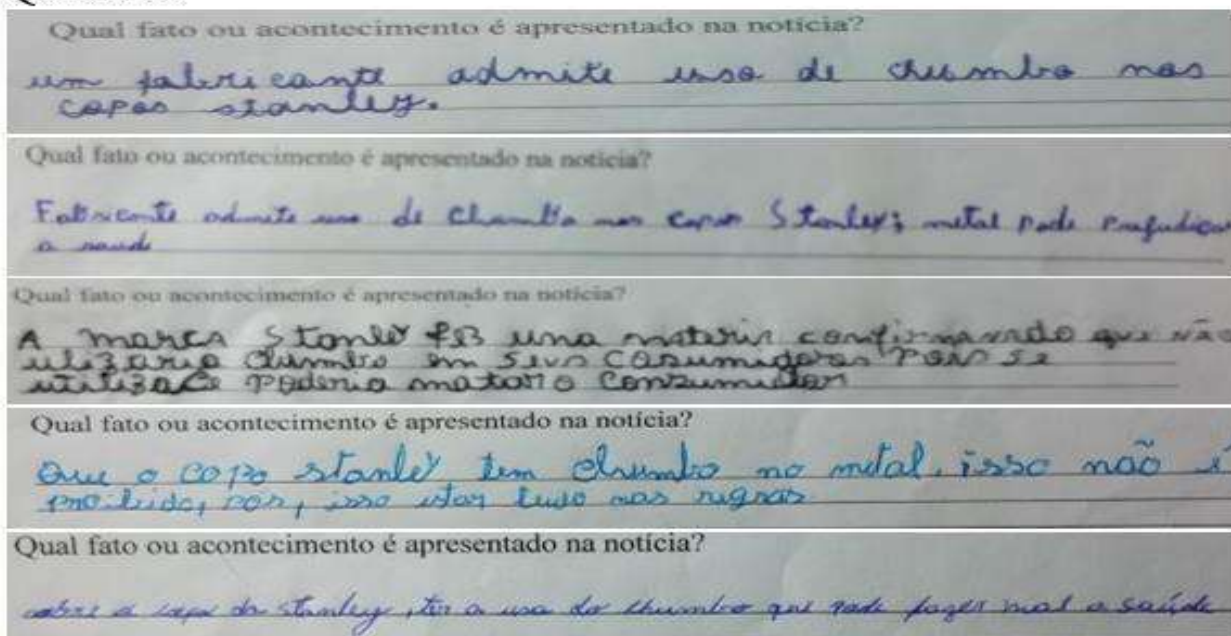 Qual fato ou acontecimento é apresentado na notícia?
um fabricante admite uso de chumbo nos
copos stanley.
Qual fato ou acontecimento é apresentado na notícia?
Fabricante admite uso de chumbo nos copos Stanley; metal pode prejudicar
a saude
Qual fato ou acontecimento é apresentado na notícia?
A marca Stanley fes uma materia confirmando que não
ulizaria chumbo em seus casumidores pois se
utilizace poderia matar o consumidor
Qual fato ou acontecimento é apresentado na notícia?
Que o copo stanley tem chumbo no metal, isso não é
proibido, por, isso estar tudo nas regras
Qual fato ou acontecimento é apresentado na notícia?
sobre o copo da stanley, ter o uso do chumbo que pode fazer mal a saúde